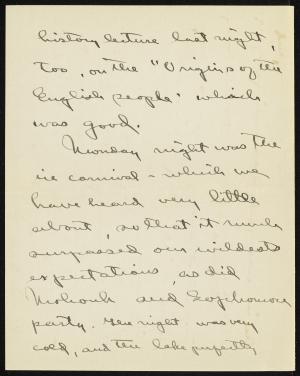 history lecture last night,
too, on the "Origins of the
English people" which
was good.
Monday night was the
ice carnival - which we
have heard very little
about, so that it much
surpassed our wildests
expectations, as did
Mohonk and Sophomore
party. The night was very
cold, and the lake perfectly